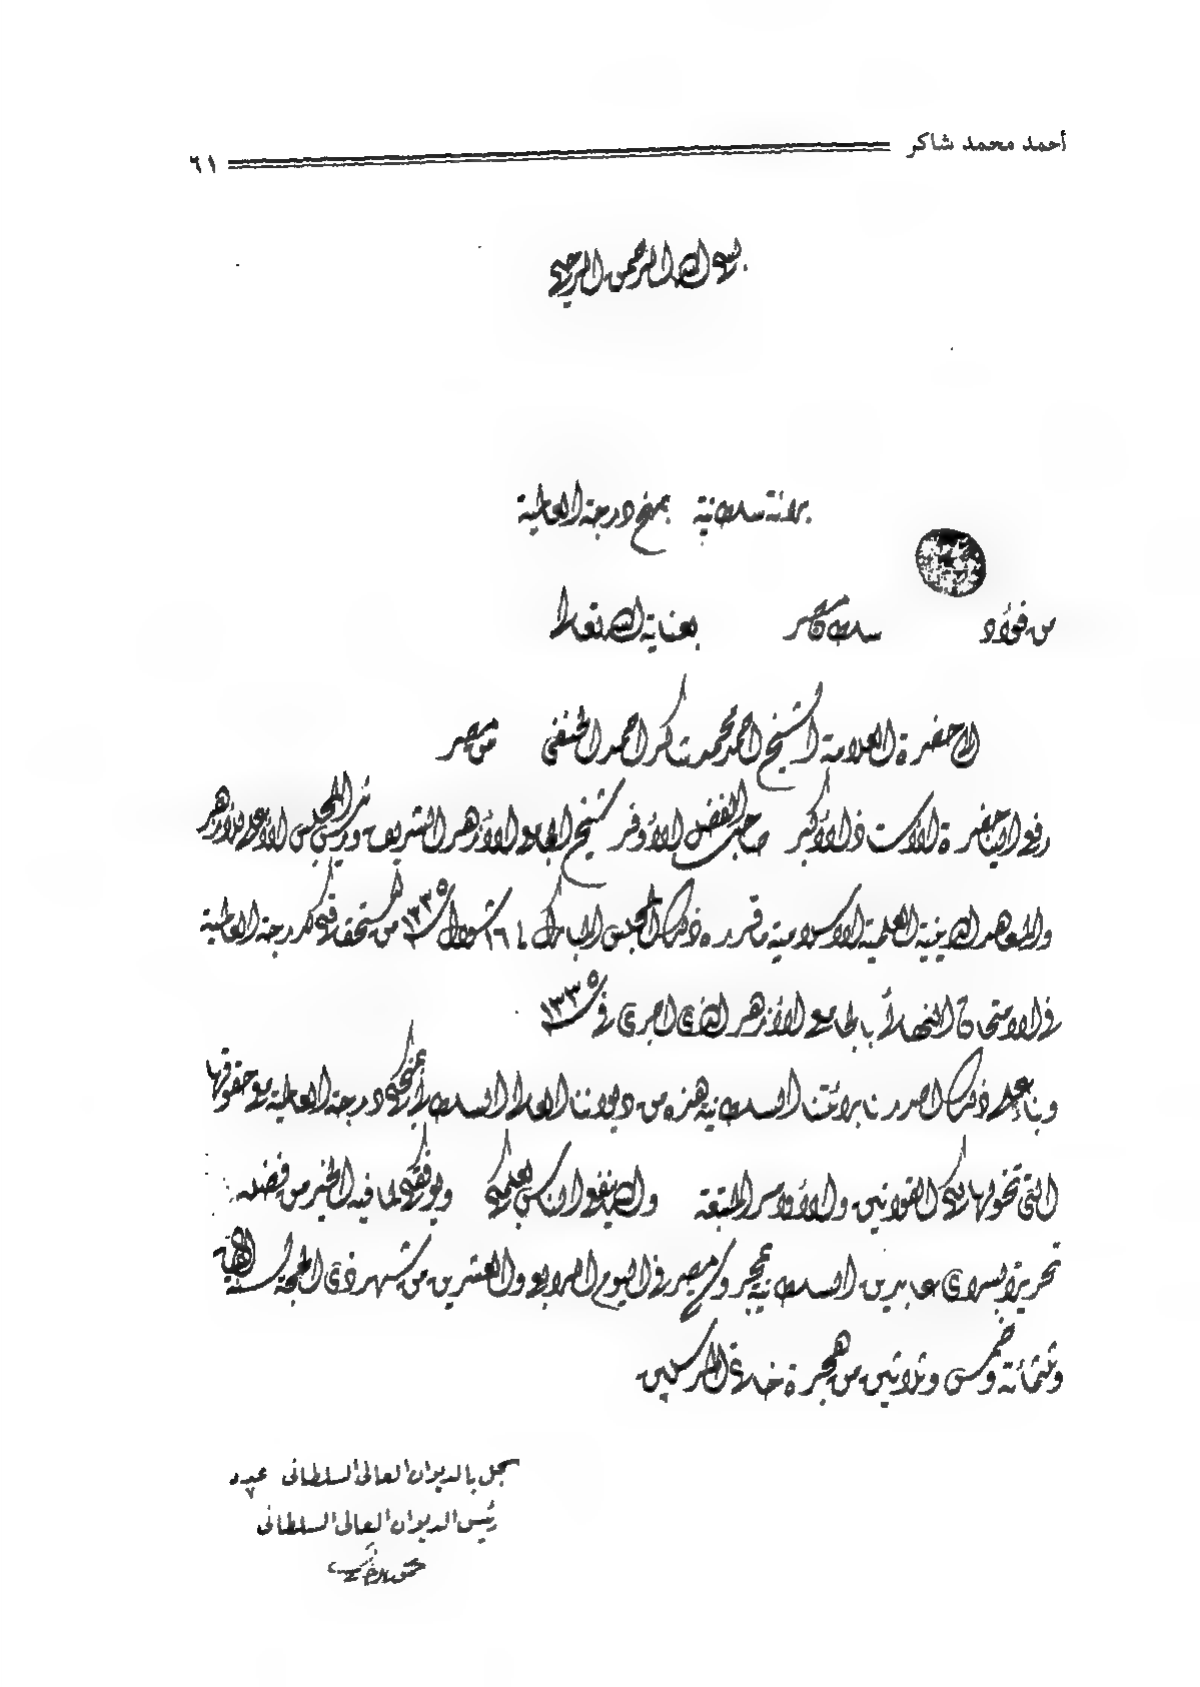 أحمد محمد شاكر ٦١
بسم الله الرحمن الرحيم
براءة سلطانية بمنح درجة العالمية
من فؤاد سلطان مصر بعناية الله تعالى
إلى حضرة العلامة الشيخ أحمد محمد شاكر أحمد الحنفي من مصر
رفع إلينا حضرة الأستاذ الأكبر صاحب الفضل الأوفر شيخ الجامع الأزهر الشريف ورئيس المجلس الأعلى للأزهر
والمعاهد الدينية العلمية الإسلامية ما قرره ذلك المجلس المبارك ١٦ شوال ١٣٣٥ من استحقاقكم درجة العالمية
في الامتحان النهائي بالجامع الأزهر الذي أجرى في ١٣٣٥
وبناء على ذلك أصدرنا براءتنا السلطانية هذه من ديواننا العالي السلطاني بمنحكم درجة العالمية مع حقوقها
التي تخولها لكم القوانين والأوامر المتبعة والله ينفع الناس بعلمكم ويوفقكم لما فيه الخير من فضله
تحريرا بسراي عابدين السلطانية بمحروسة مصر في اليوم الرابع والعشرين من شهر ذي الحجة لسنة ألف
وثلثمائة وخمس وثلاثين من هجرة خاتم المرسلين
سجل بالديوان العالى السلطانى عدد ٧
رئيس الديوان العالى السلطانى